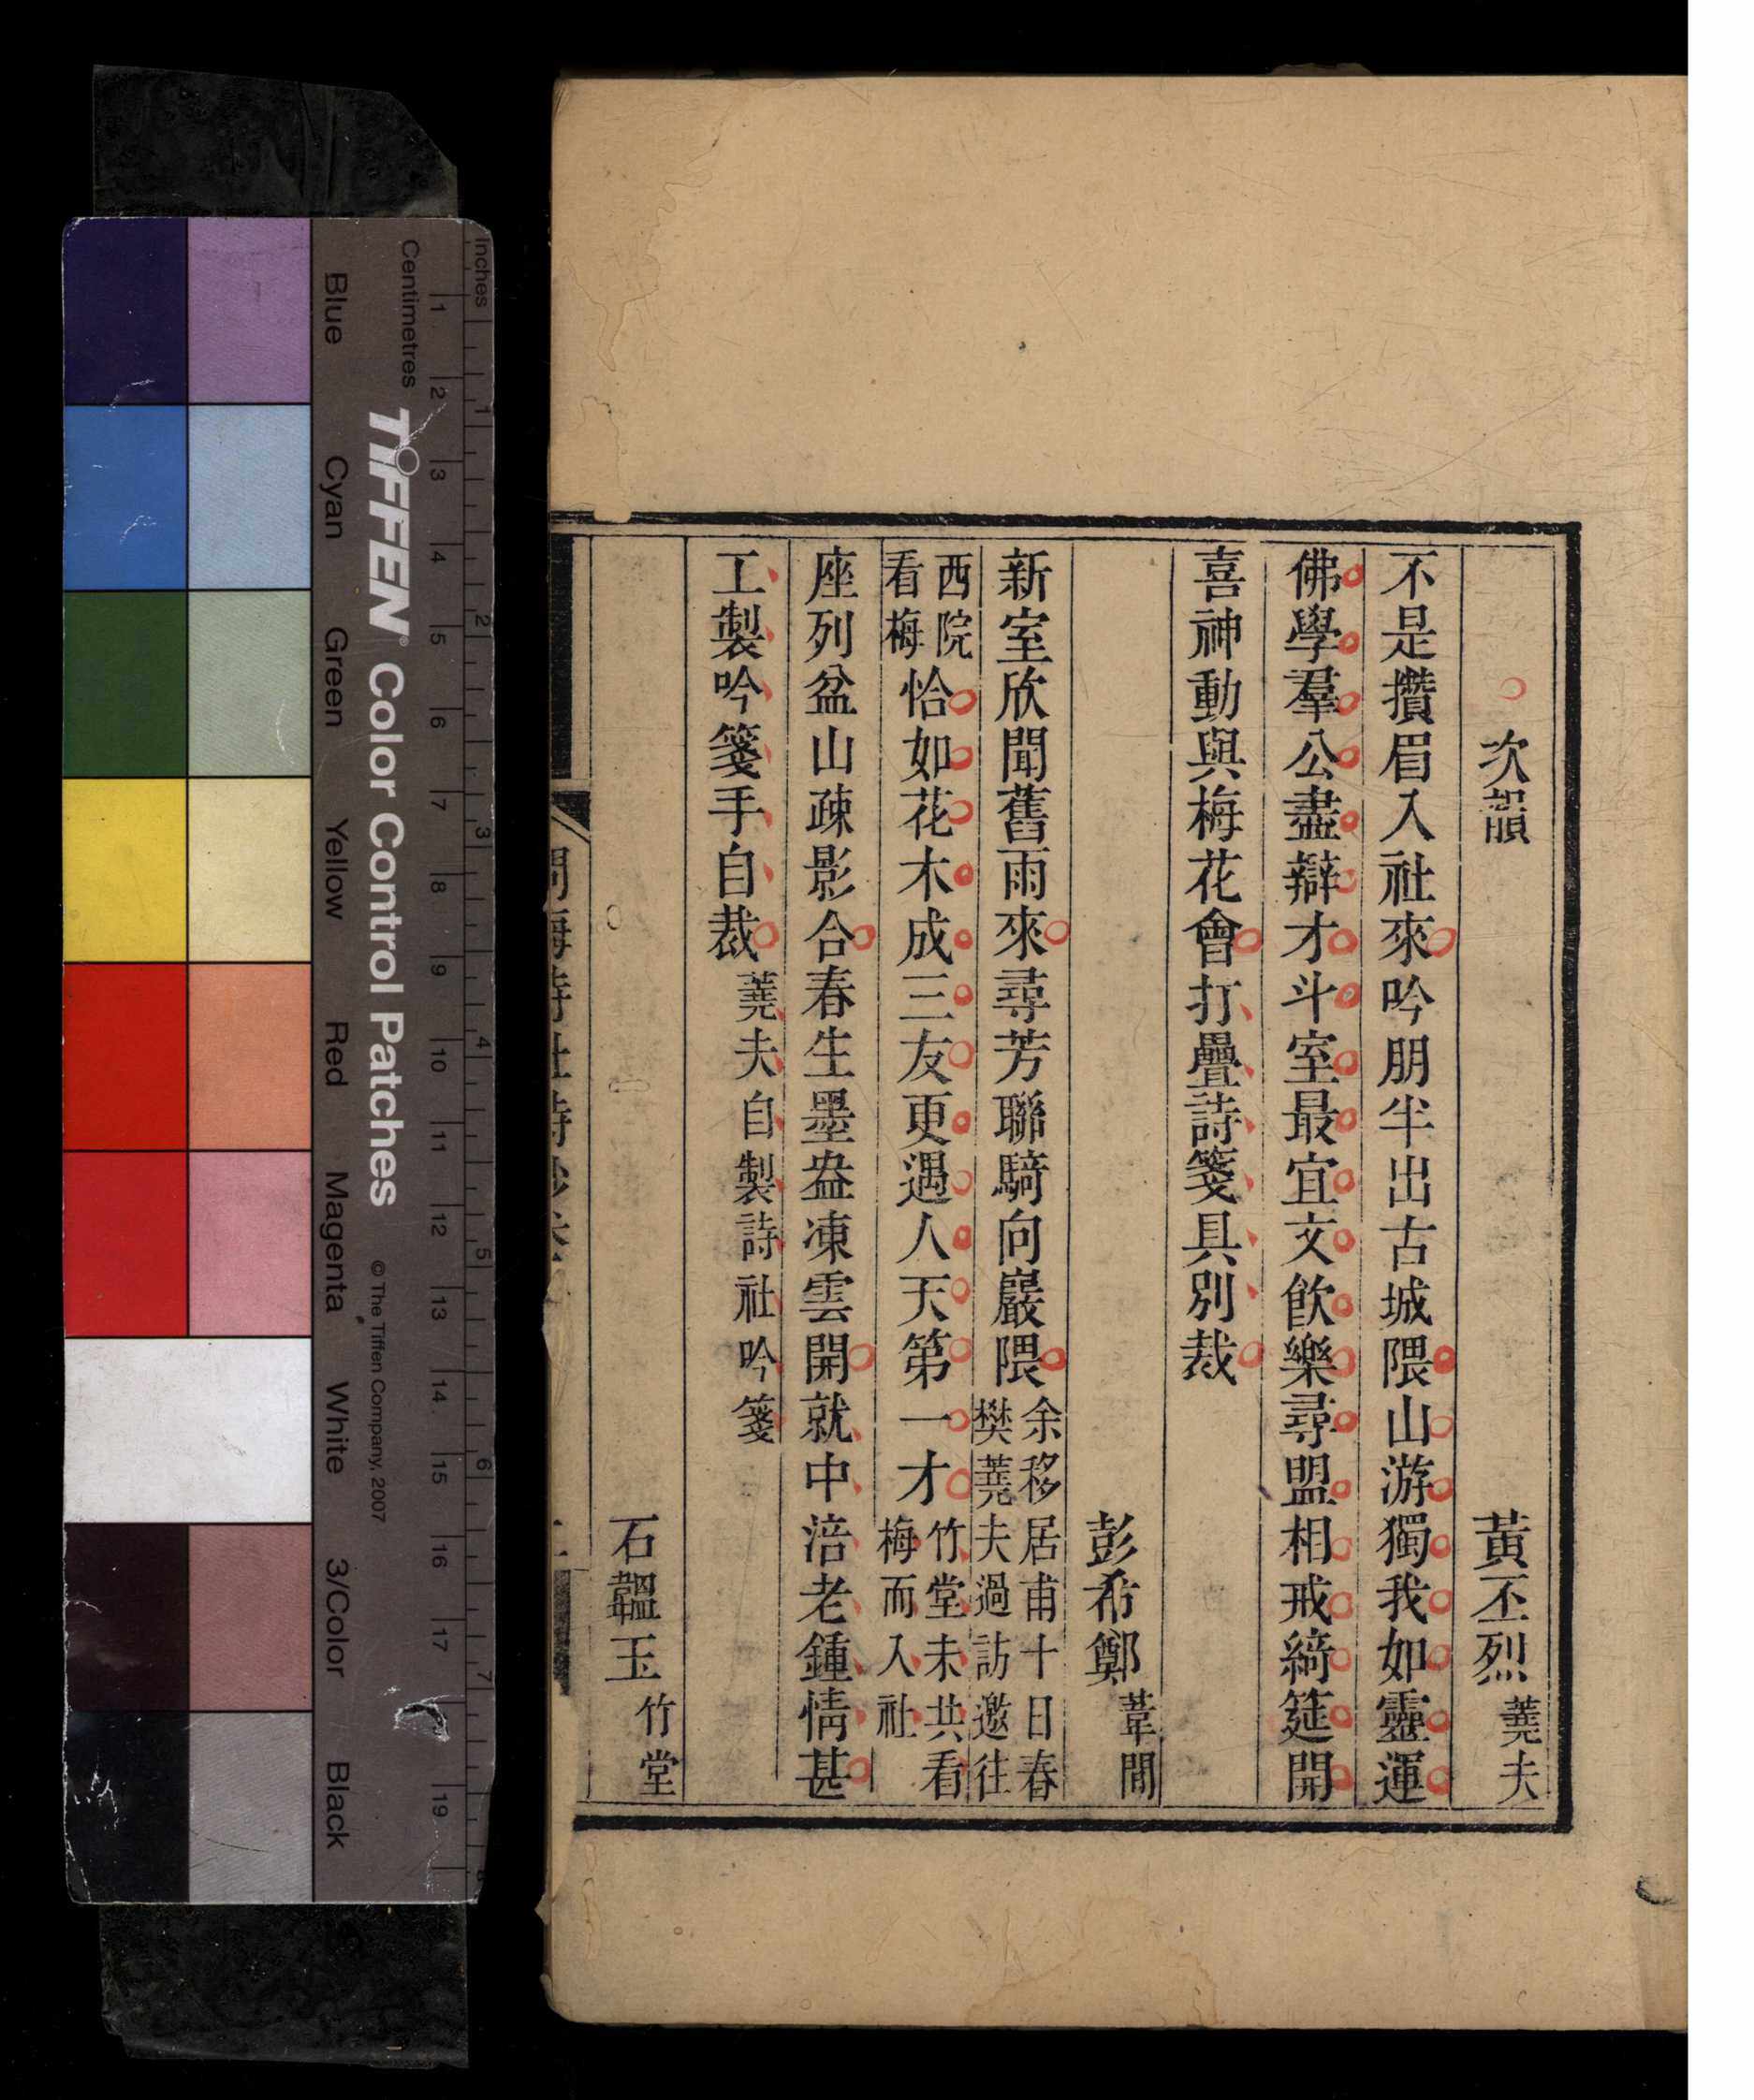 次韻　黃丕烈 蕘夫
不是攢眉入社來吟朋半出古城隈山游獨我如靈運
佛學羣公盡辯才斗室最宜文飮樂尋盟相戒綺筵開
喜神動與梅花會打疊詩箋具別裁
彭希鄭 葦間
新室欣聞舊雨來尋芳聯騎向巖隈
余移居甫十日春
樊蕘夫過訪邀往
西院
看梅
恰如花木成三友更遇人天第一才
竹堂未共看
梅而入社
座列盆山疎影合春生墨盎凍雲開就中涪老鍾情甚
工製吟箋手自裁 蕘夫自製詩社吟箋
石韞玉 竹堂
Inches
Centimetres
1 2 3 4 5 6 7 8 9 10 11 12 13 14 15 16 17 19
1 2 3 4 5 6 7 8
TIFFEN® Color Control Patches © The Tiffen Company, 2007
Blue Cyan Green Yellow Red Magenta White 3/Color Black